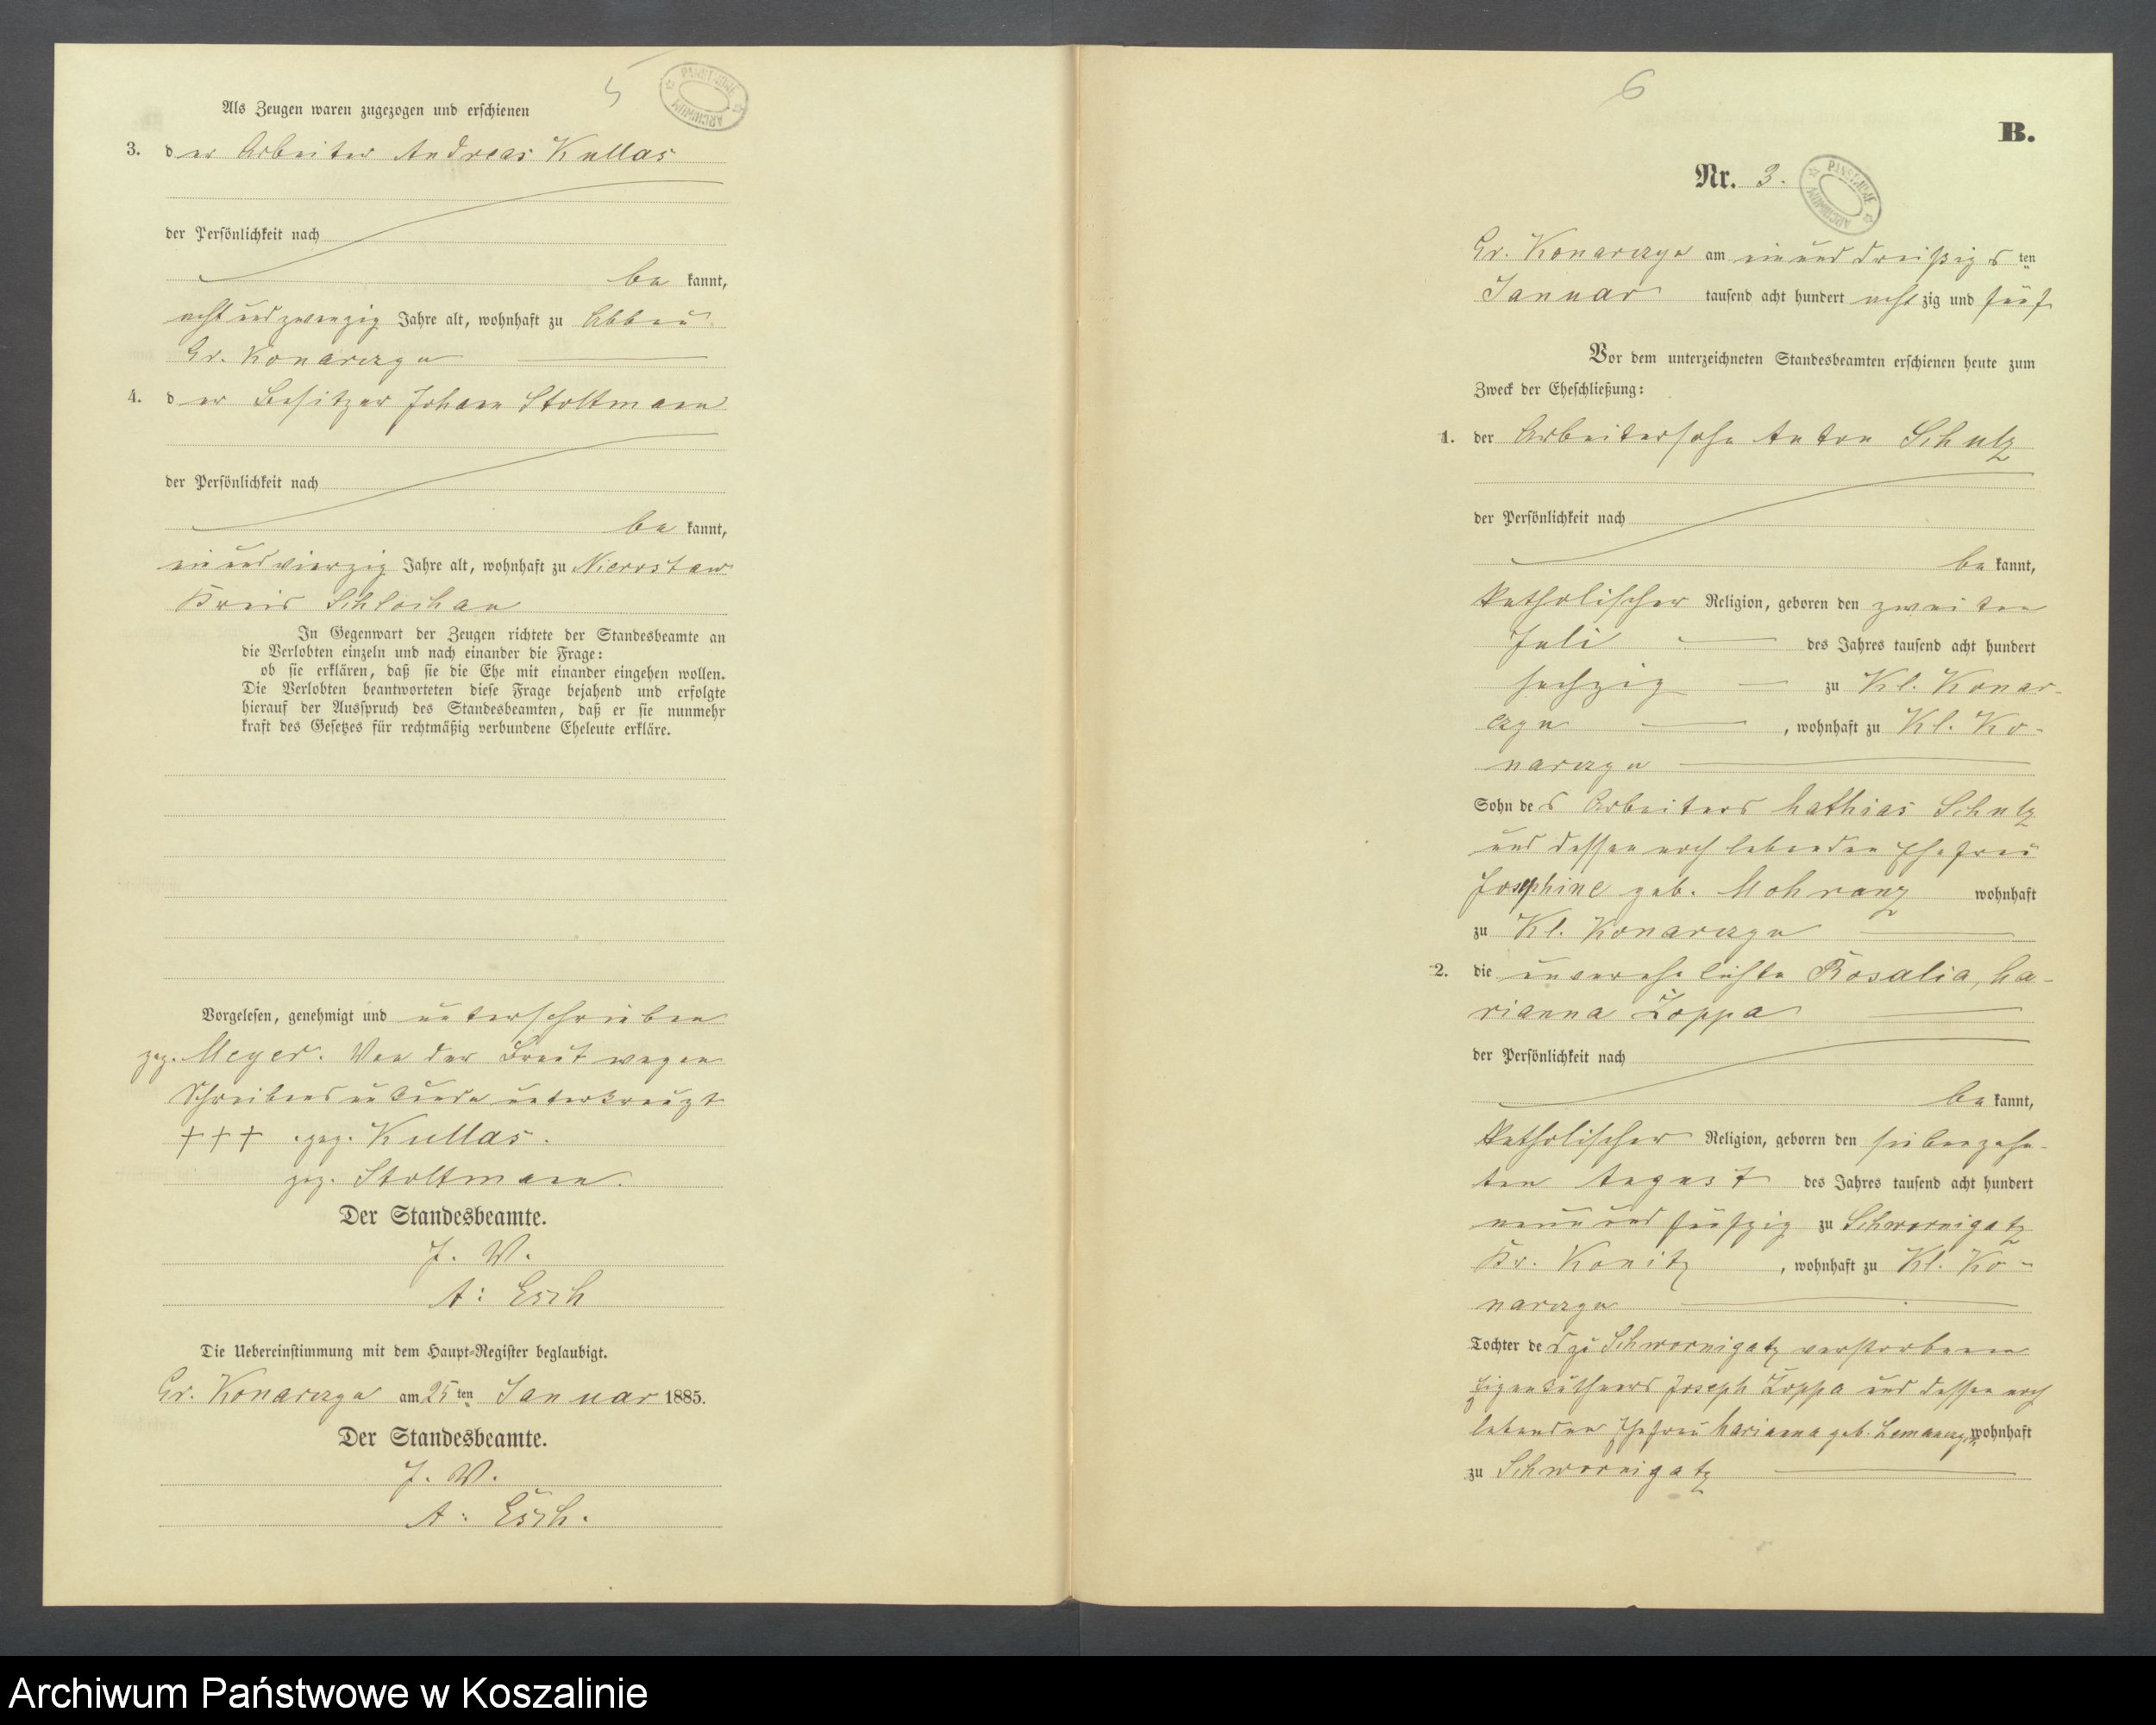 5
PAŃSTWOWE ARCHIWUM
Als Zeugen waren zugezogen und erschienen
3. der Arbeiter Andreas Kullas
der Persönlichkeit nach
be kannt,
acht und zwanzig Jahre alt, wohnhaft zu Abbau
Gr. Konarczyn
4. der Besitzer Johann Stoltmann
der Persönlichkeit nach
be kannt,
ein und vierzig Jahre alt, wohnhaft zu Nierostaw
Kreis Schlochau
In Gegenwart der Zeugen richtete der Standesbeamte an
die Verlobten einzeln und nach einander die Frage:
ob sie erklären, daß sie die Ehe mit einander eingehen wollen.
Die Verlobten beantworteten diese Frage bejahend und erfolgte
hierauf der Ausspruch des Standesbeamten, daß er sie nunmehr
kraft des Gesetzes für rechtmäßig verbundene Eheleute erkläre.
Vorgelesen, genehmigt und unterschrieben
gez. Meyer. Von der Braut wegen
Schreibensunkunde unterkreuzt
+++ . gez. Kullas.
gez. Stoltmann.
Der Standesbeamte.
J. V.
A: Esch
Die Uebereinstimmung mit dem Haupt-Register beglaubigt.
Gr. Konarczyn am 25 ten Januar 1885.
Der Standesbeamte.
J. V.
A: Esch.
6
B.
Nr. 3.
PAŃSTWOWE ARCHIWUM
Gr. Konarczyn am ein und dreißigs ten
Januar tausend acht hundert acht zig und fünf
Vor dem unterzeichneten Standesbeamten erschienen heute zum
Zweck der Eheschließung:
1. der Arbeitersohn Anton Schulz
der Persönlichkeit nach
be kannt,
katholischer Religion, geboren den zweiten
Juli des Jahres tausend acht hundert
sechzig zu Kl. Konar-
czyn , wohnhaft zu Kl. Ko-
narczyn
Sohn des Arbeiters Mathias Schulz
und dessen noch lebenden Ehefrau
Josephine geb. Mohranz wohnhaft
zu Kl. Konarczyn
2. die unverehelichte Rosalia, Ma-
rianna Zoppa
der Persönlichkeit nach
be kannt,
katholischer Religion, geboren den siebenzehn-
ten August des Jahres tausend acht hundert
neun und fünfzig zu Schwornigatz
Kr. Konitz , wohnhaft zu Kl. Ko-
narczyn
Tochter des zu Schwornigatz verstorbenen
Eigenkäthners Joseph Zoppa und dessen noch
lebenden Ehefrau Marianna geb. wohnhaft
zu Schwornigatz
Archiwum Państwowe w Koszalinie